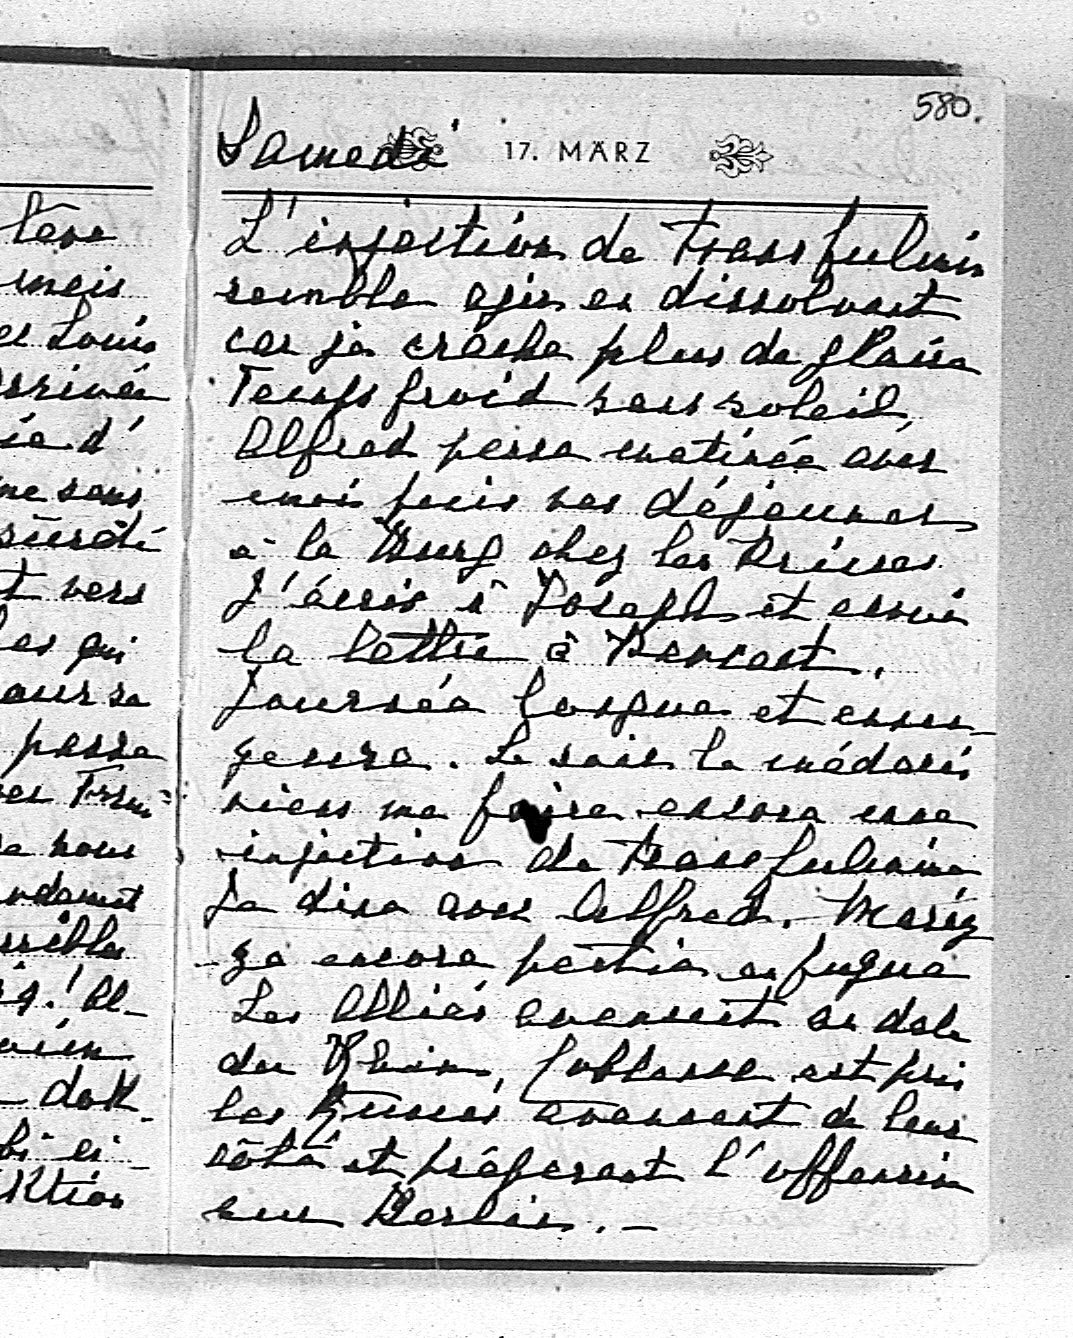 580.
Samedi 17. MÄRZ
L'injection de Transfulmin
semble agir en dissolvant
car je crache plus de glaire
Temps froid sans soleil,
Alfred passe matinée avec
moi puis vas déjeuner
à la Burg chez les Princes
J'écris à Joseph et envoie
la lettre à
Journée longue et ennu-
yeuse. Le soir le médecin
viens me faire encore une
injection de Transfulmine
Je dine avec Alfred.
encore partie en fugue
Les Alliés avancent au delà
du Rhin, Coblence est pris
les Russes avancent de leur
côté et préparent l'offensive
sur Berlin. -
tene
mais
et Louis
arrivée
d'
me sans
t vers
les qui
pour sa
passe
nous
Al-